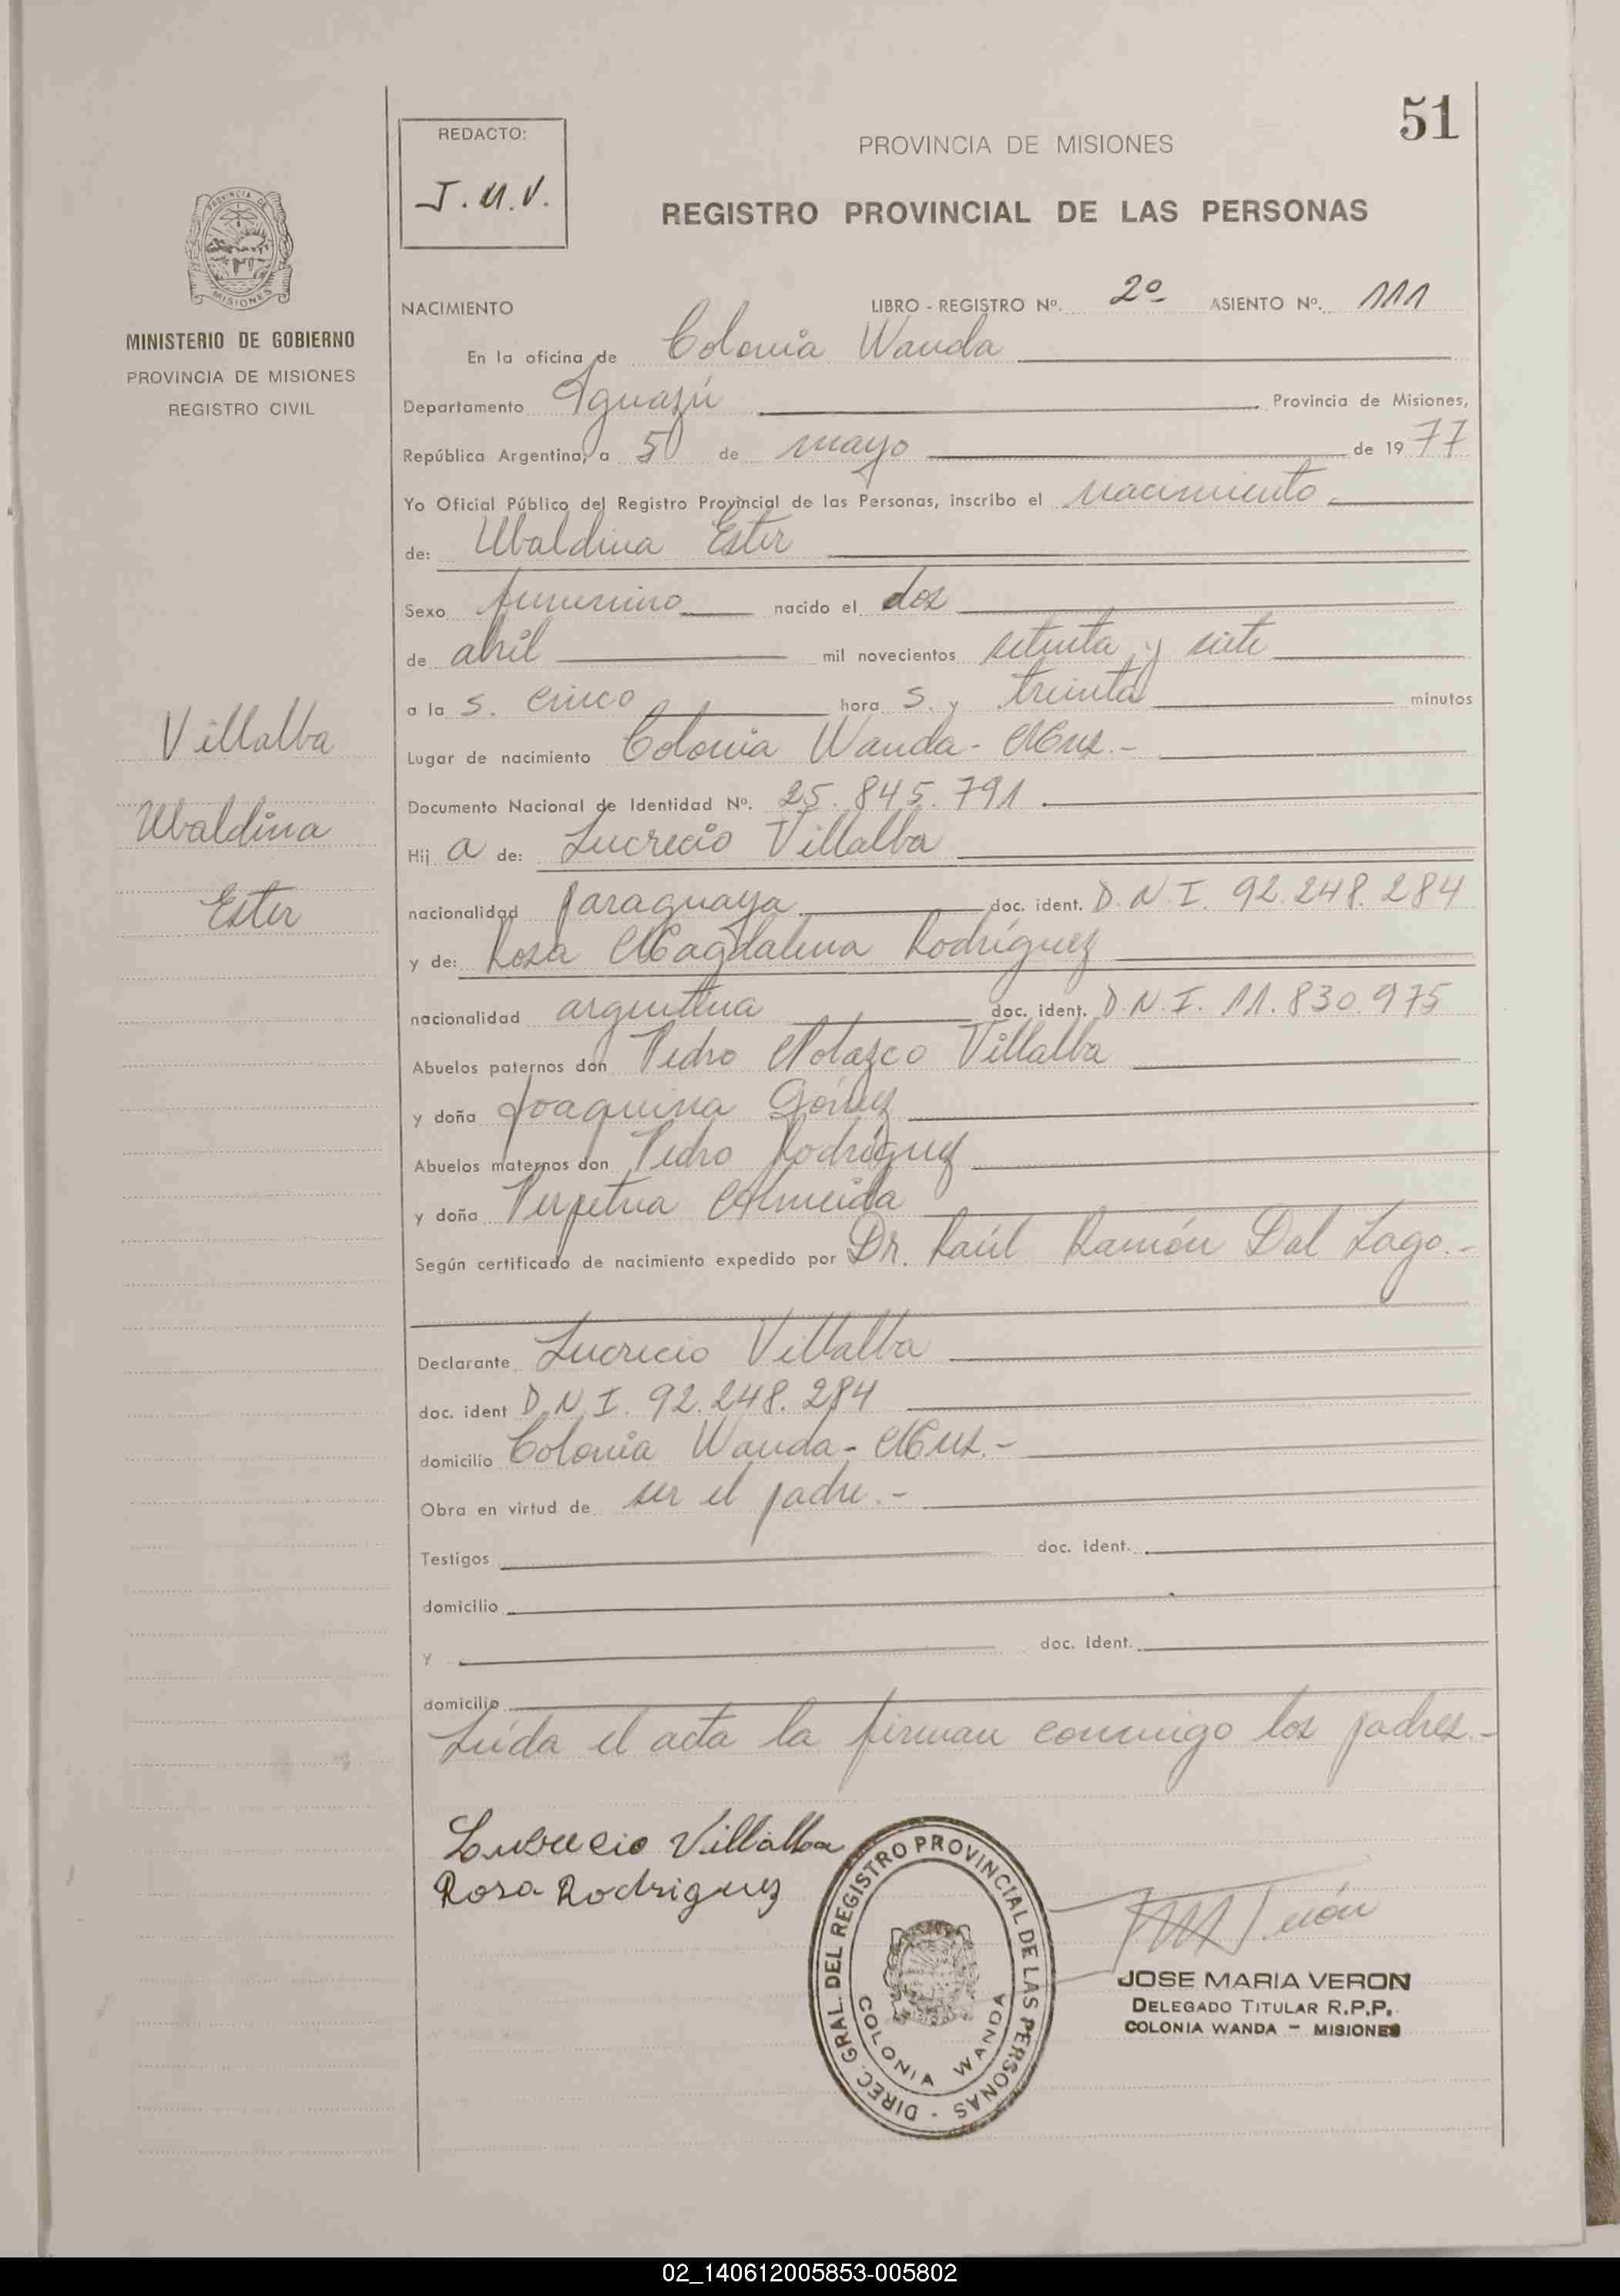 51
REDACTO:
J.M.V.
PROVINCIA DE MISIONES
REGISTRO PROVINCIAL DE LAS PERSONAS
PROVINCIA DE
MISIONES
MINISTERIO DE GOBIERNO
PROVINCIA DE MISIONES
REGISTRO CIVIL
Villalba
Ubaldina
Ester
NACIMIENTO LIBRO - REGISTRO Nº. 2º ASIENTO Nº. 111
En la oficina de Colonia Wanda
Departamento Iguazú Provincia de Misiones,
República Argentina, a 5 de mayo de 1977
Yo Oficial Público del Registro Provincial de las Personas, inscribo el nacimiento.
de: Ubaldina Ester
Sexo femenino nacido el dos
de abril mil novecientos setenta y siete
a la s. cinco hora s. y treinta minutos
Lugar de nacimiento Colonia Wanda - Mnes.-
Documento Nacional de Identidad Nº. 25.845.791.
Hij a de: Lucrecio Villalba
nacionalidad paraguaya doc. ident. D.N.I. 92.248.284
y de: Rosa Magdalena Rodríguez
nacionalidad argentina doc. ident. D.N.I. 11.830.975
Abuelos paternos don Pedro Nolazco Villalba
y doña Joaquina Gómez
Abuelos maternos don Pedro Rodríguez
y doña Perpetua Almeida
Según certificado de nacimiento expedido por Dr. Raúl Ramón Dal Lago.-
Declarante Lucrecio Villalba
doc. ident D.N.I. 92.248.284
domicilio Colonia Wanda - Mnes.-
Obra en virtud de ser el padre.-
Testigos doc. ident.
domicilio
y doc. ident.
domicilio
Leída el acta la firman conmigo los padres.-
Lucrecio Villalba
Rosa Rodriguez
DIREC. GRAL. DEL REGISTRO PROVINCIAL DE LAS PERSONAS -
COLONIA WANDA
JOSE MARIA VERON
DELEGADO TITULAR R.P.P.
COLONIA WANDA - MISIONES
02_140612005853-005802